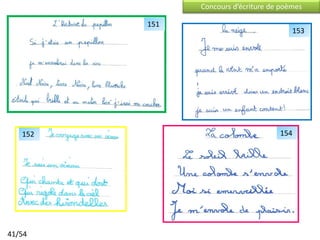 Concours d'écriture de poèmes
151
L'histoire du papillon
Si j'étais un papillon
je m'envolerai dans les airs
Noël Noire, Loire Noire, Lave Blanche
étoile qui brille et au matin bas j'irais me coucher
153
la neige
Je me suis envolé
quand le vent m'a emporté
je suis arrivé dans un endroit blanc
je suis un enfant content!
152
Je voyage avec un oiseau
Je suis un oiseau
Qui chante et qui dort
Qui rigole dans le ciel
Avec des hirondelles
154
La colombe
Le soleil brille
Une colombe s'envole
Moi si émerveillée
Je m'envole de plaisir.
41/54